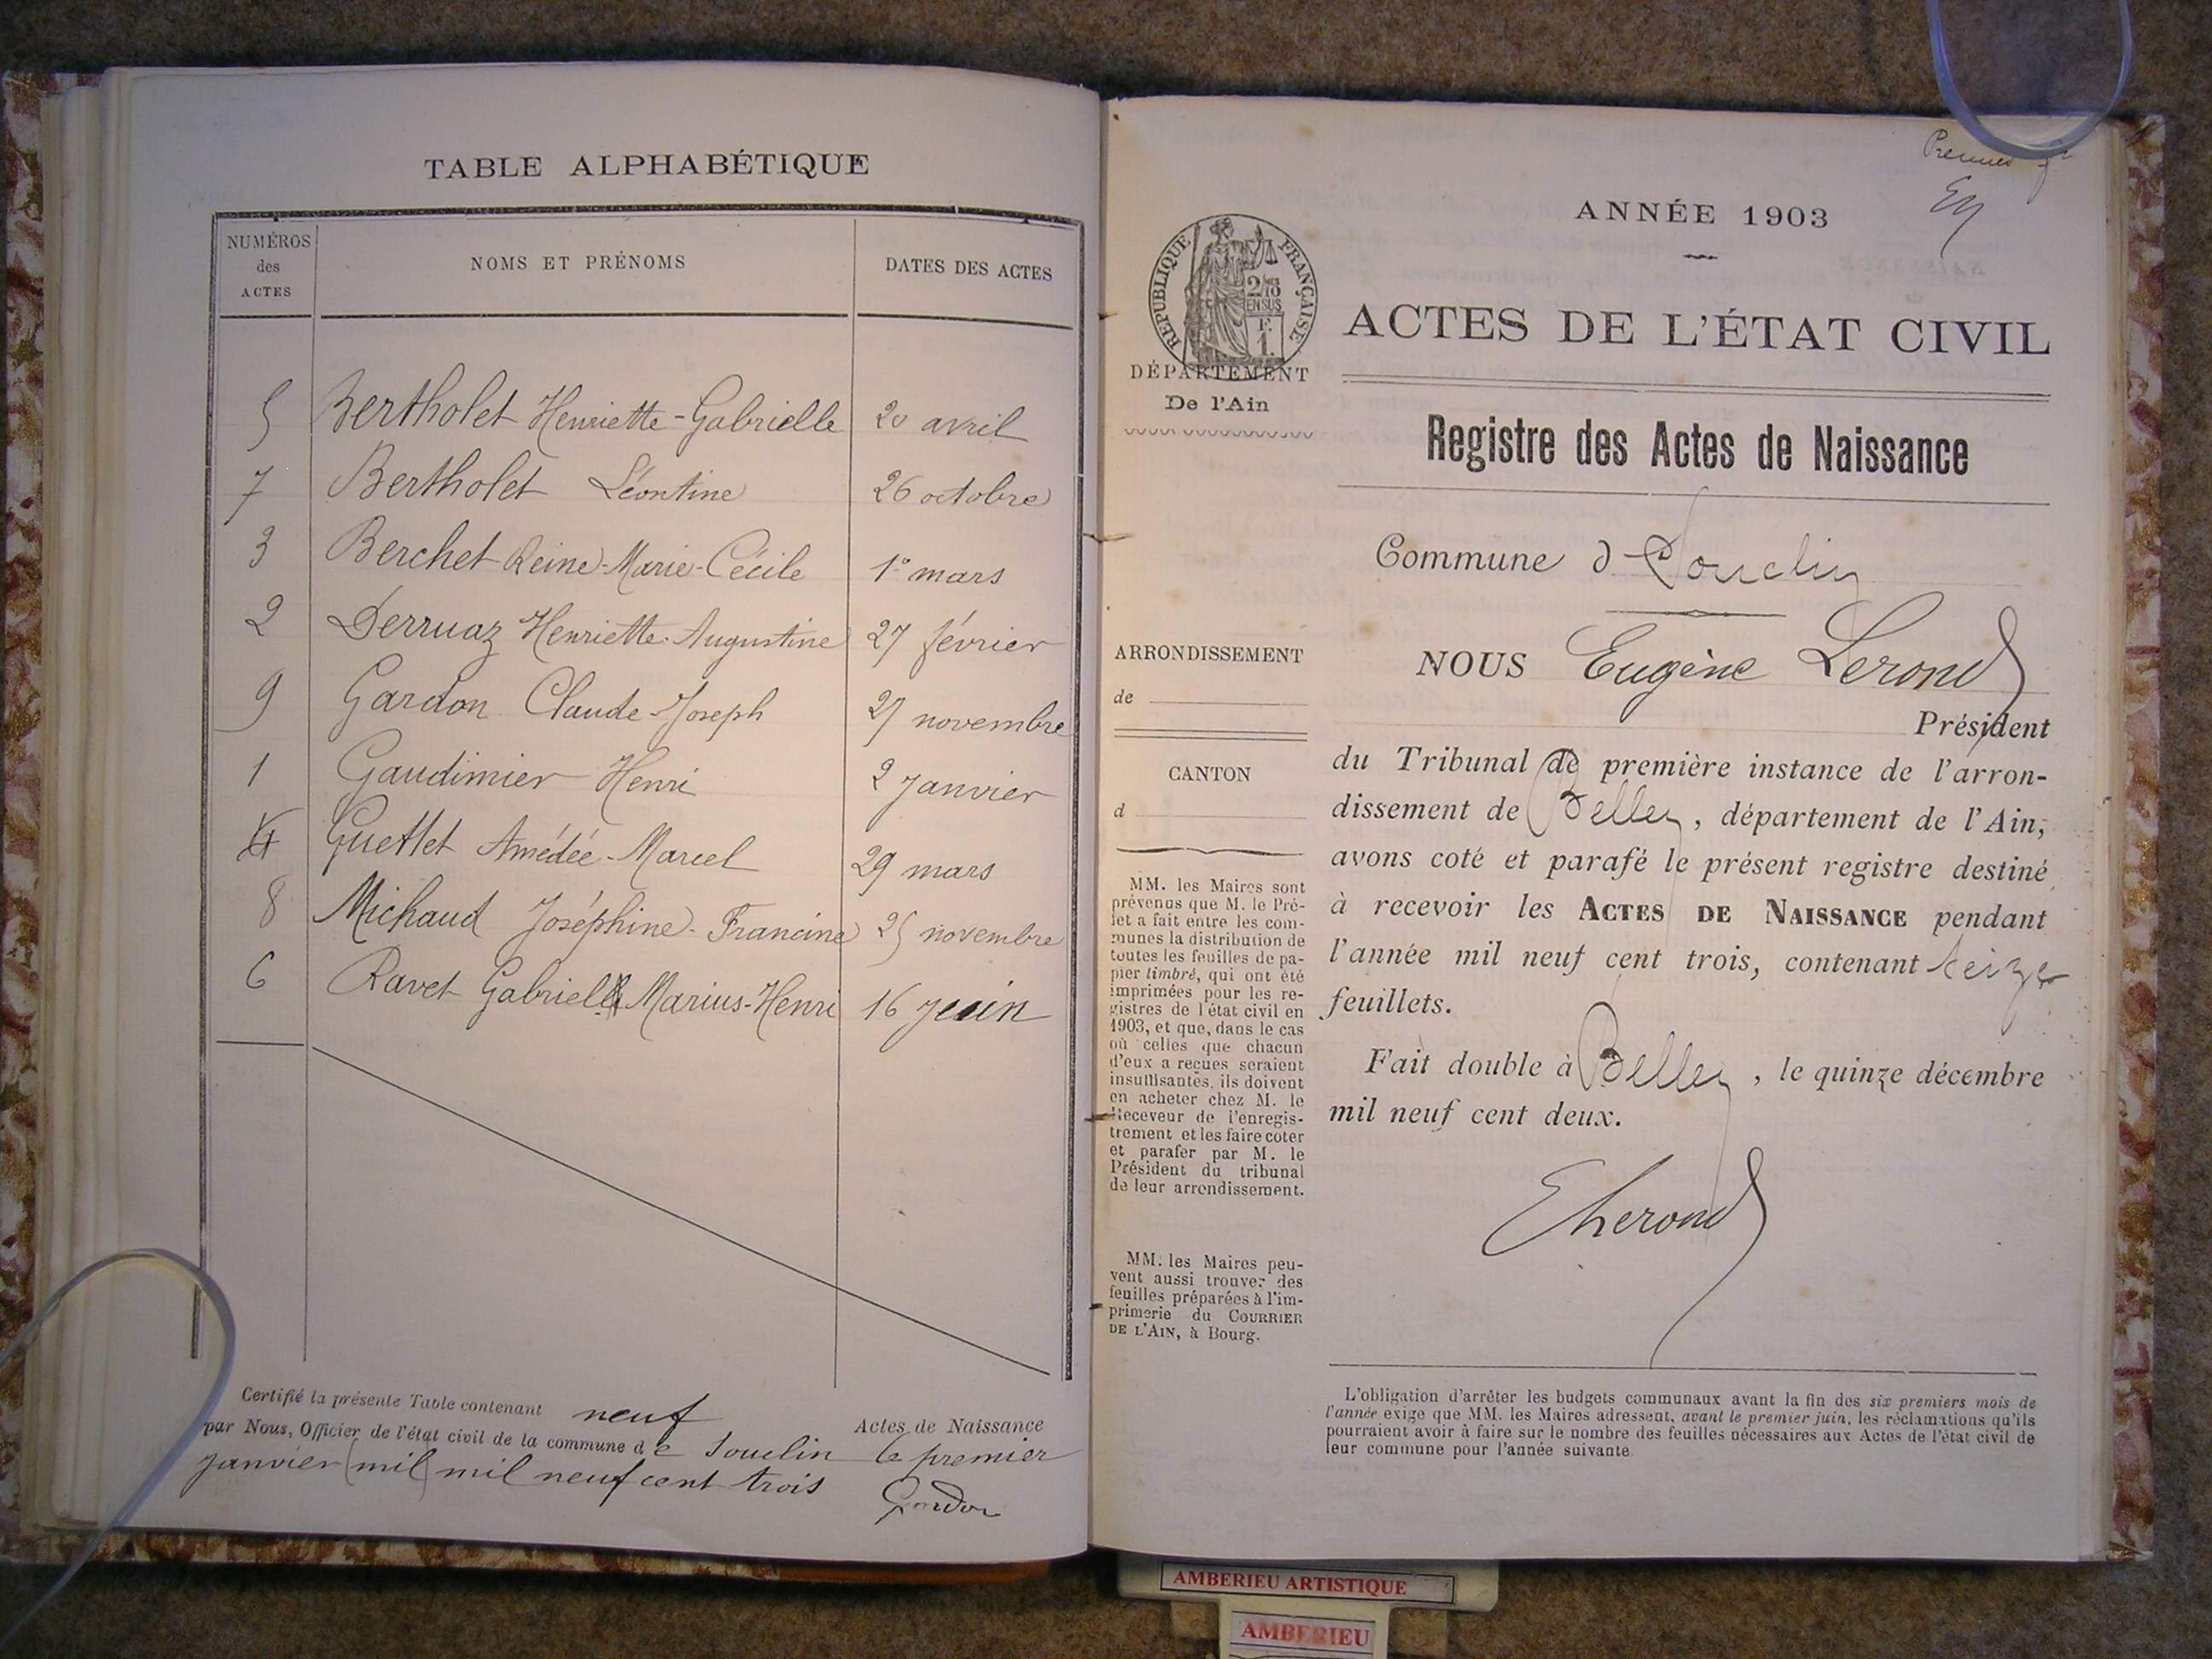 TABLE ALPHABÉTIQUE
NUMÉROS des ACTES NOMS ET PRÉNOMS DATES DES ACTES
5 Bertholet Henriette-Gabrielle 20 avril
7 Bertholet Léontine 26 octobre
3 Berchet Reine-Marie-Cécile 1º mars
2 Derruaz Henriette-Augustine 27 février
9 Gardon Claude-Joseph 27 novembre
1 Gaudimier Henri 2 Janvier
4 Guettet Amédée-Marcel 29 mars
8 Michaud Joséphine-Francine 25 novembre
6 Ravet Gabriel Marius-Henri 16 Juin
Certifié la présente Table contenant neuf Actes de Naissance
par Nous, Officier de l'état civil de la commune de Souclin le premier
janvier (mil) mil neuf cent trois
Gardon
Premier
ANNÉE 1903
RÉPUBLIQUE FRANÇAISE
2/10
EN SUS
F.
1.
ACTES DE L'ÉTAT CIVIL
DÉPARTEMENT
De l'Ain
Registre des Actes de Naissance
Commune d Souclin
ARRONDISSEMENT
de
CANTON
d
MM. les Maires sont
prévenus que M. le Pré-
fet a fait entre les com-
munes la distribution de
toutes les feuilles de pa-
pier timbré, qui ont été
imprimées pour les re-
gistres de l'état civil en
1903, et que, dans le cas
où celles que chacun
d'eux a reçues seraient
insuffisantes, ils doivent
en acheter chez M. le
Receveur de l'enregis-
trement et les faire coter
et parafer par M. le
Président du tribunal
de leur arrondissement.
MM. les Maires peu-
vent aussi trouver des
feuilles préparées à l'im-
primerie du COURRIER
DE L'AIN, à Bourg.
NOUS Eugène Lerond
Président
du Tribunal de première instance de l'arron-
dissement de Belley, département de l'Ain,
avons coté et parafé le présent registre destiné
à recevoir les ACTES DE NAISSANCE pendant
l'année mil neuf cent trois, contenant seize
feuillets.
Fait double à Belley, le quinze décembre
mil neuf cent deux.
E Lerond
L'obligation d'arrêter les budgets communaux avant la fin des six premiers mois de
l'année exige que MM. les Maires adressent, avant le premier juin, les réclamations qu'ils
pourraient avoir à faire sur le nombre des feuilles nécessaires aux Actes de l'état civil de
leur commune pour l'année suivante.
AMBERIEU ARTISTIQUE
AMBERIEU